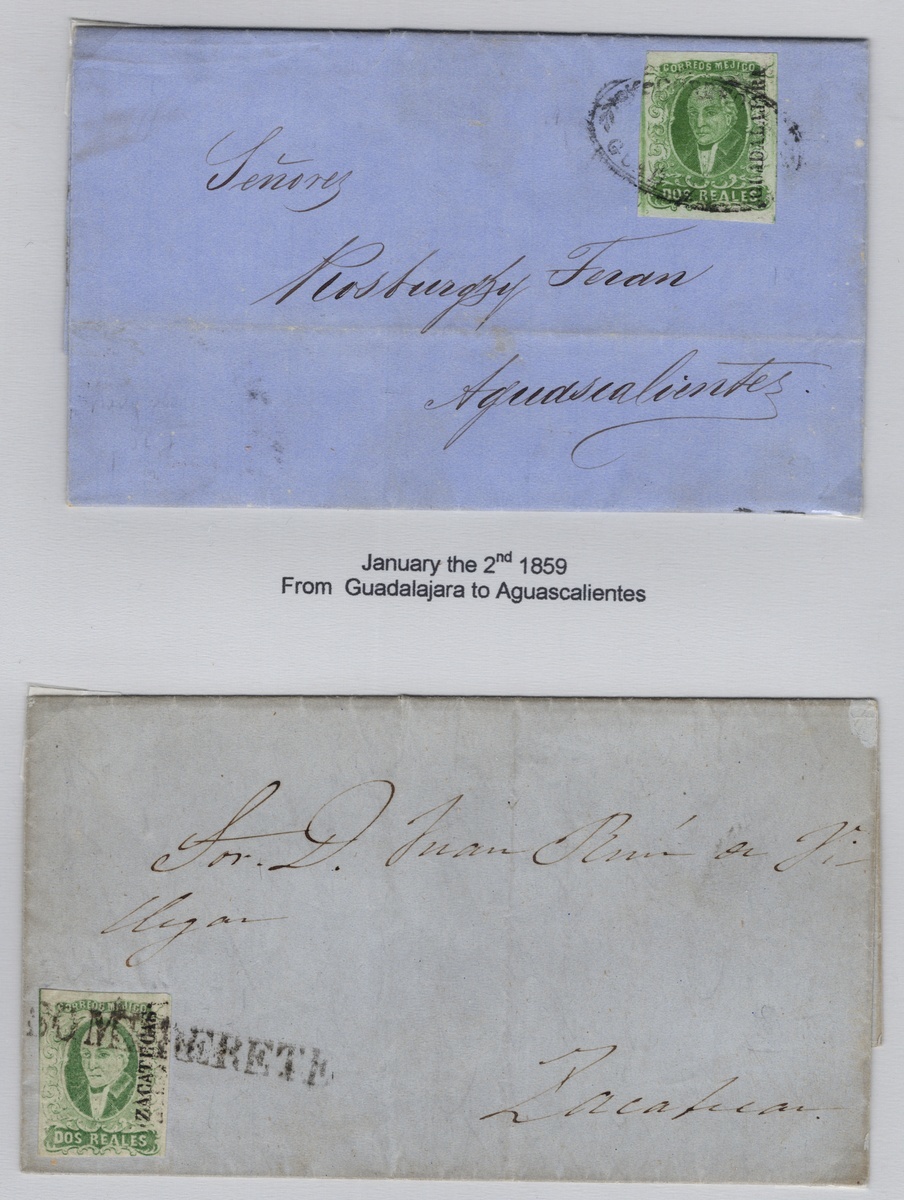 CORREOS MEJICO
GUADALAJARA
DOS REALES
Señores
y Teran
Aguascalientes.
January the 2nd 1859
From Guadalajara to Aguascalientes
Sor. D. Juan
CORREOS MEJICO
ZACATECAS
SOMBRERETE
DOS REALES
Zacatecas